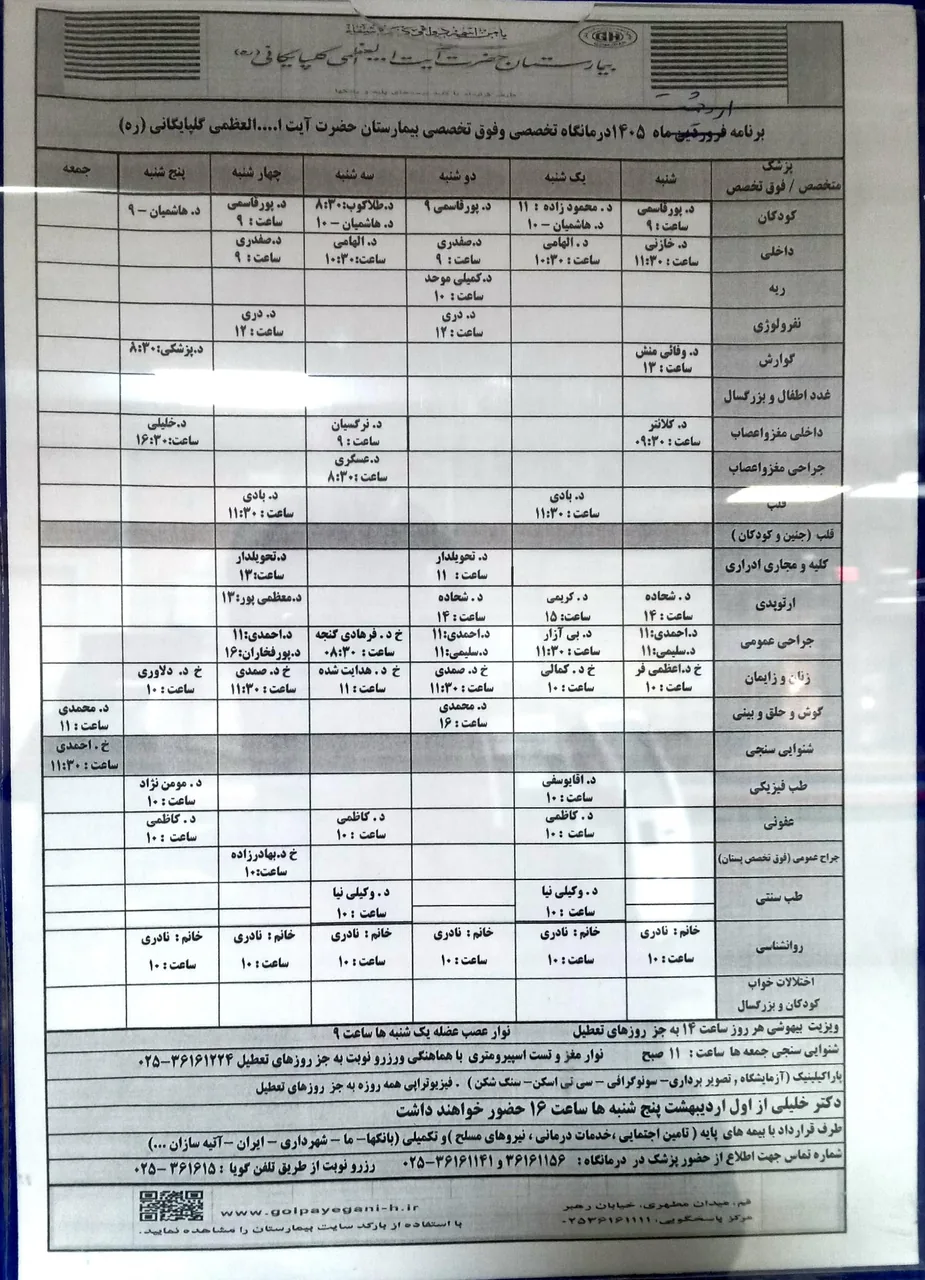 بیمارستان حضرت آیت ا... العظمی گلپایگانی (ره)
اردیبهشت
برنامه فروردین ماه ۱۴۰۵ درمانگاه تخصصی وفوق تخصصی بیمارستان حضرت آیت ا....العظمی گلپایگانی (ره)
پزشک متخصص / فوق تخصص شنبه یک شنبه دو شنبه سه شنبه چهار شنبه پنج شنبه جمعه
کودکان د. پورقاسمی ساعت : ۹ د . محمود زاده : ۱۱ د. هاشمیان - ۱۰ د. پورقاسمی ۹ د.طلاکوب:۸:۳۰ د. هاشمیان - ۱۰ د. پورقاسمی ساعت : ۹ د. هاشمیان - ۹
داخلی د. خازنی ساعت : ۱۱:۳۰ د . الهامی ساعت : ۱۰:۳۰ د.صفدری ساعت : ۹ د. الهامی ساعت:۱۰:۳۰ د.صفدری ساعت : ۹
ریه د.کمیلی موحد ساعت : ۱۰
نفرولوژی د. دری ساعت : ۱۲ د. دری ساعت : ۱۲
گوارش د. وفائی منش ساعت : ۱۳ د.پزشکی:۸:۳۰
غدد اطفال و بزرگسال
داخلی مغزواعصاب د. کلانتر ساعت : ۰۹:۳۰ د. نرگسیان ساعت : ۹ د.خلیلی ساعت:۱۶:۳۰
جراحی مغزواعصاب د.عسگری ساعت : ۸:۳۰
قلب د. بادی ساعت : ۱۱:۳۰ د. بادی ساعت : ۱۱:۳۰
قلب (جنین و کودکان )
کلیه و مجاری ادراری د. تحویلدار ساعت : ۱۱ د.تحویلدار ساعت:۱۳
ارتوپدی د . شحاده ساعت : ۱۴ د . کریمی ساعت: ۱۵ د . شحاده ساعت : ۱۴ د.معظمی پور:۱۳
جراحی عمومی د.احمدی:۱۱ د.سلیمی:۱۱ د. بی آزار ساعت : ۱۱:۳۰ د.احمدی:۱۱ د.سلیمی:۱۱ خ د . فرهادی گنجه ساعت : ۰۸:۳۰ د.احمدی:۱۱ د.پورفخاران:۱۶
زنان و زایمان خ د.اعظمی فر ساعت : ۱۰ خ د. کمالی ساعت : ۱۰ خ د. صمدی ساعت : ۱۱:۳۰ خ د . هدایت شده ساعت : ۱۱ خ د.صمدی ساعت : ۱۱:۳۰ خ د. دلاوری ساعت : ۱۰
گوش و حلق و بینی د.محمدی ساعت : ۱۶ د. محمدی ساعت : ۱۱
شنوایی سنجی خ . احمدی ساعت : ۱۱:۳۰
طب فیزیکی د. اقایوسفی ساعت : ۱۰ د . مومن نژاد ساعت : ۱۰
عفونی د . کاظمی ساعت : ۱۰ د . کاظمی ساعت : ۱۰ د . کاظمی ساعت : ۱۰
جراح عمومی (فوق تخصص پستان) خ د.بهادرزاده ساعت:۱۰
طب سنتی د . وکیلی نیا ساعت : ۱۰ د . وکیلی نیا ساعت : ۱۰
روانشناسی خانم : نادری ساعت : ۱۰ خانم : نادری ساعت : ۱۰ خانم : نادری ساعت : ۱۰ خانم : نادری ساعت : ۱۰ خانم : نادری ساعت : ۱۰ خانم : نادری ساعت : ۱۰
اختلالات خواب کودکان و بزرگسال
ویزیت بیهوشی هر روز ساعت ۱۴ به جز روزهای تعطیل نوار عصب عضله یک شنبه ها ساعت ۹
شنوایی سنجی جمعه ها ساعت : ۱۱ صبح نوار مغز و تست اسپیرومتری با هماهنگی ورزرو نوبت به جز روزهای تعطیل ۳۶۱۶۱۲۲۴-۰۲۵
پاراکلینیک (آزمایشگاه , تصویر برداری- سونوگرافی - سی تی اسکن- سنگ شکن ) . فیزیوتراپی همه روزه به جز روزهای تعطیل
دکتر خلیلی از اول اردیبهشت پنج شنبه ها ساعت ۱۶ حضور خواهند داشت
طرف قرارداد با بیمه های پایه ( تامین اجتمایی ،خدمات درمانی ، نیروهای مسلح )و تکمیلی (بانکها- ما - شهرداری - ایران -آتیه سازان ...)
شماره تماس جهت اطلاع از حضور پزشک در درمانگاه : ۳۶۱۶۱۱۵۶ و ۳۶۱۶۱۱۴۱-۰۲۵ رزرو نوبت از طریق تلفن گویا : ۳۶۱۶۱۵ -۰۲۵
قم، میدان مطهری، خیابان رهبر
مرکز پاسخگویی: ۰۲۵۳۶۱۶۱۱۱۱
www.golpayegani-h.ir
با استفاده از بارکد سایت بیمارستان را مشاهده نمایید.